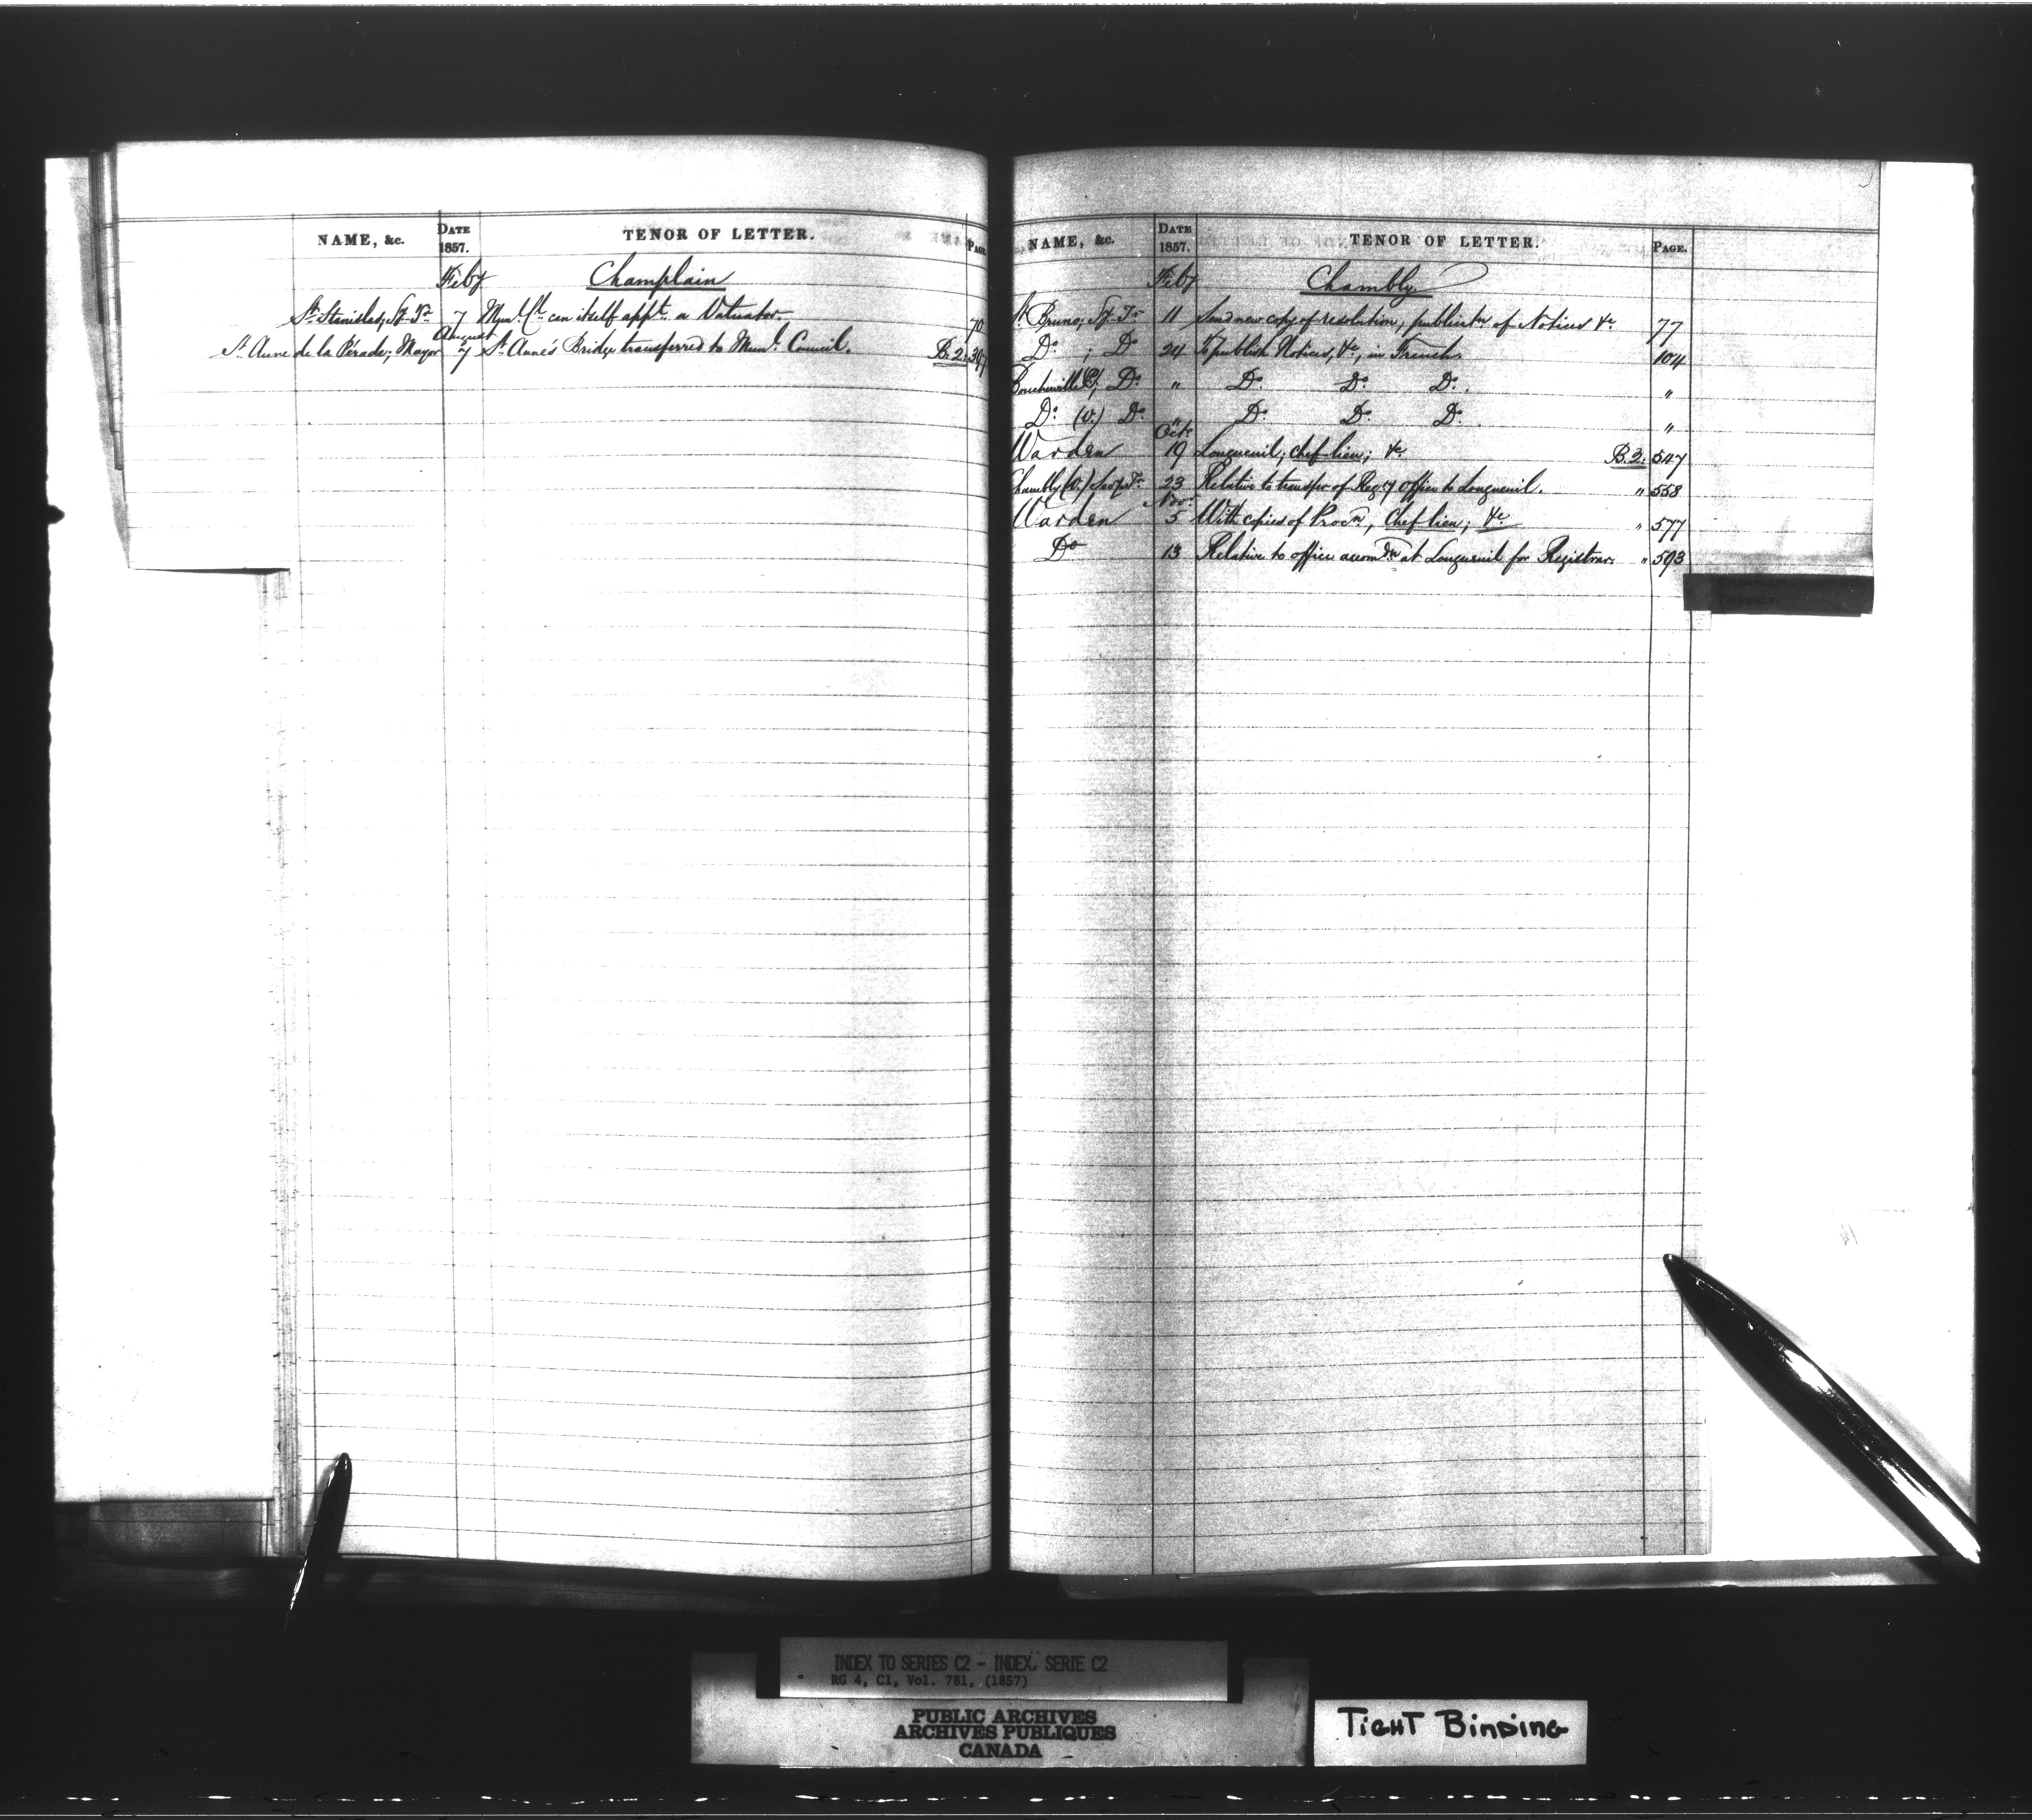 NAME, &c. DATE 1857. TENOR OF LETTER. PAGE.
Feby Champlain
St. Stanislas; Sy. Tr. 7 Munl. Cl. can itself appt. a Valuator. 70
August
St. Anne de la Pérade; Mayor 7 St. Anne's Bridge transferred to Munl. Council. B.2. 367
NAME, &c. DATE 1857. TENOR OF LETTER. PAGE.
Feby Chambly.
St. Bruno; Sy. Tr. 11 Send new copy of resolution; publicatn of Notices &c. 77
Do. ; Do 24 To publish Notices, &c, in French. 104
Boucherville ; Do. " Do. Do. Do. "
Do. (V.) Do. " Do. Do. Do. "
Octr.
Warden 19 Longueuil; chef-lieu; &c. B.2. 547
Chambly (V.) Secy Tr. 23 Relative to transfer of Regy office to Longueuil. " 558
Novr.
Warden 5 With copies of Procn, Chef lieu; &c " 577
Do 13 Relative to office accomdn at Longueuil for Registrar. " 593
CHAMPLAIN.
CHAMBLY.
INDEX TO SERIES C2 - INDEX, SERIE C2
RG 4, C1, Vol. 781, (1857)
PUBLIC ARCHIVES
ARCHIVES PUBLIQUES
CANADA
TIGHT BINDING